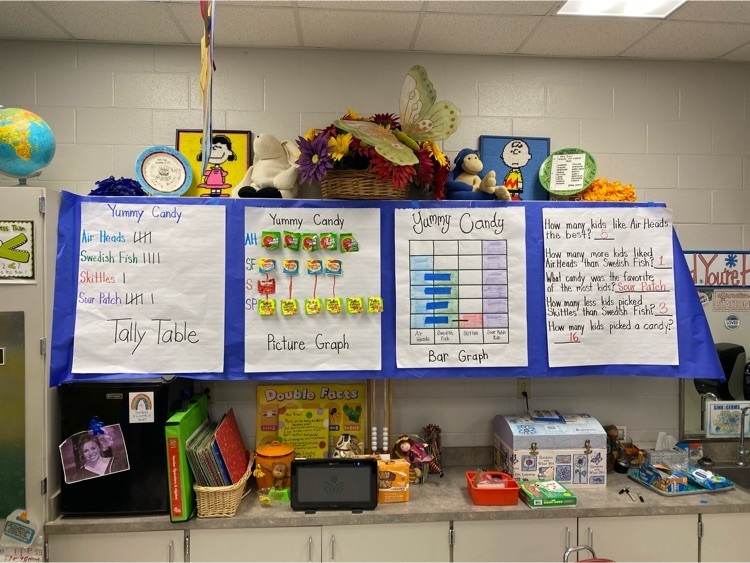 Yummy Candy
Air Heads
Swedish Fish
Skittles
Sour Patch
Tally Table
Yummy Candy
AH
SF
S
SP
Picture Graph
Yummy Candy
Air Heads
Swedish Fish
Skittles
Sour Patch Kids
Bar Graph
How many kids like Air Heads
the best? 5
How many more kids liked
Air Heads than Swedish Fish? 1
What candy was the favorite
of the most kids? Sour Patch
How many less kids picked
Skittles than Swedish Fish? 3
How many kids picked a candy?
16
Double Facts
You're